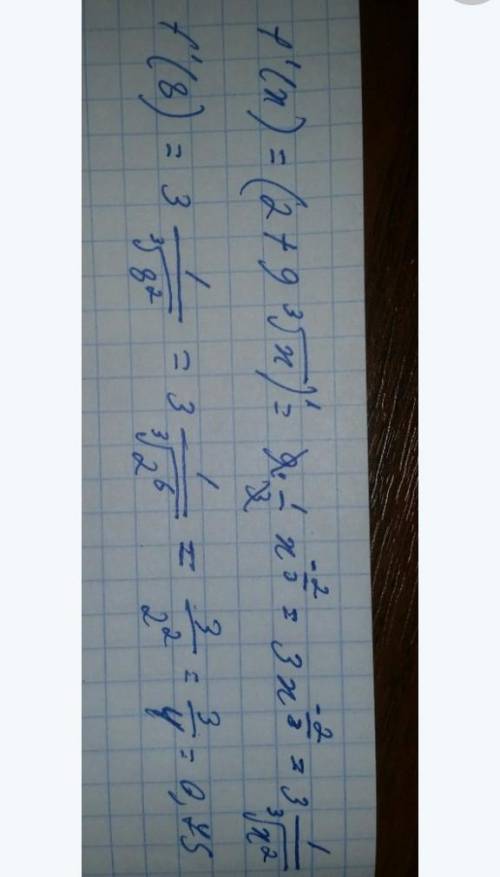 f'(x) = (2 + 9∛x)' = 9 · 1/3 x^(-2/3) = 3x^(-2/3) = 3 1/∛x²
f'(8) = 3 1/∛8² = 3 1/∛2⁶ = 3/2² = 3/4 = 0,75